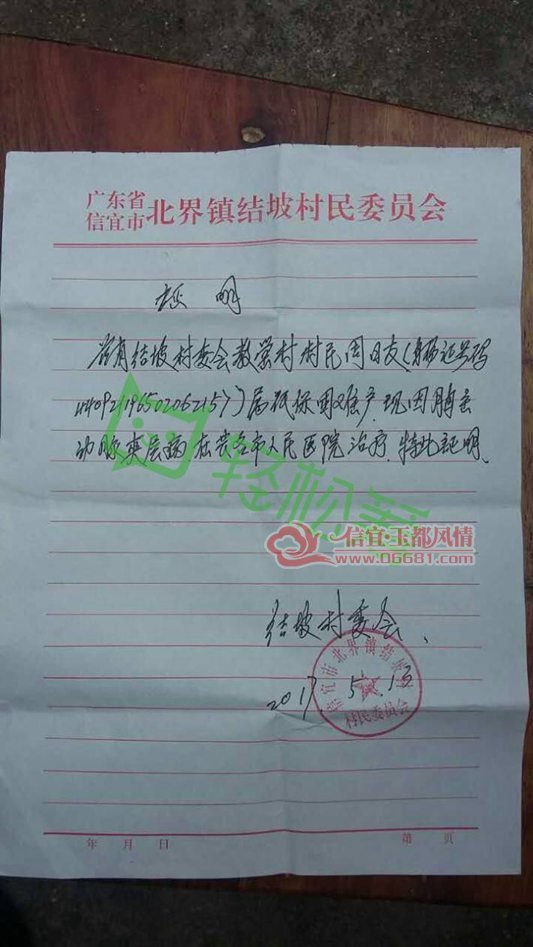 广东省
信宜市 北界镇结坡村民委员会
证明
兹有结坡村委会教堂村村民周日友(身份证号码
440921196502062157)属低保困难户.现因胸主
动脉夹层病在茂名市人民医院治疗.特此证明.
轻松筹
信宜·玉都风情
www.06681.com
结坡村委会、
2017.5.13
信宜市北界镇结坡村
村民委员会
年 月 日 第 页